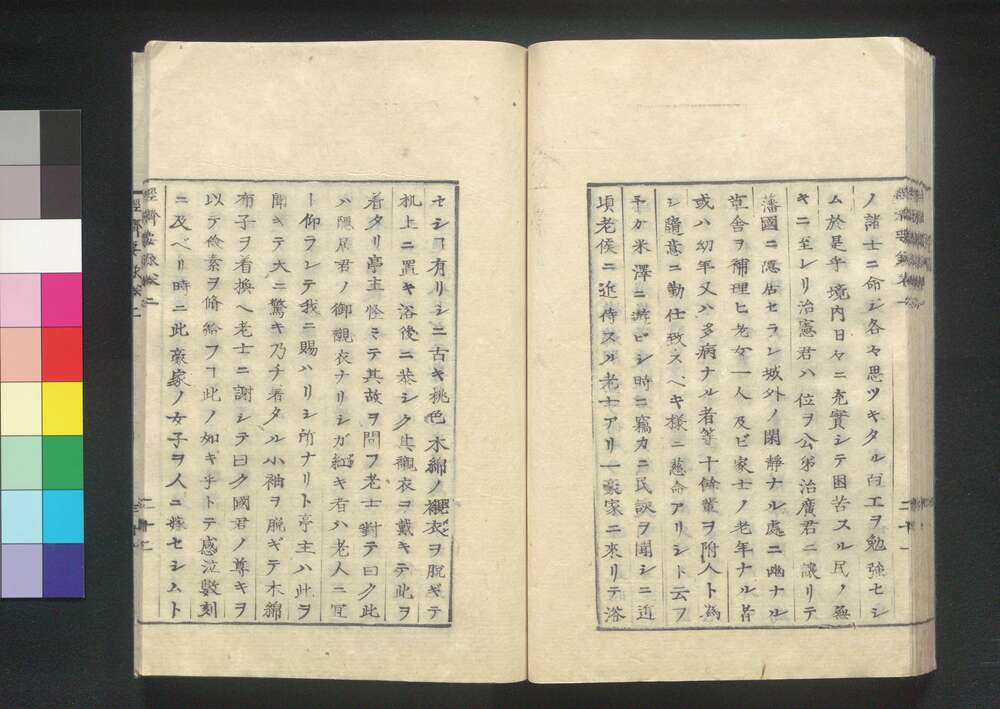 ノ諸士ニ命シ各々思ツキタル百工ヲ勉強セシ
ム於是乎境内日々ニ充實シテ困苦スル民ノ無
キニ至レリ治憲君ハ位ヲ公弟治廣君ニ讓リテ
藩國ニ隠居セラレ城外ノ閑靜ナル處ニ幽ナル
官舎ヲ補理ヒ老女一人及ビ家士ノ老年ナル者
或ハ幼年又ハ多病ナル者等十餘輩ヲ附人ト為
シ隨意ニ勤仕致スベキ様ニ慈命アリシト云フ
予カ米澤ニ遊ビシ時ニ竊カニ民訳ヲ聞シニ近
頃老侯ニ近侍スル老士アリ一豪家ニ來リテ浴
セシヿ有リシニ古キ桃色木綿ノ襯衣ヲ脱ギテ
机上ニ置キ浴後ニ恭シク其襯衣ヲ戴キテ此ヲ
着タリ亭主怪ミテ其故ヲ問フ老士對テ曰ク此
ハ隠居君ノ御襯衣ナリシガ紅キ者ハ老人ニ宜
ト仰ラレテ我ニ賜ハリシ所ナリト亭主ハ此ヲ
聞キテ大ニ驚キ乃チ着タル小袖ヲ脱ギテ木綿
布子ヲ着換ヘ老士ニ謝シテ曰ク國君ノ尊キヲ
以テ儉素ヲ脩給フヿ此ノ如キ乎トテ感泣數刻
ニ及ベリ時ニ此豪家ノ女子ヲ人ニ嫁セシムト
經濟要録卷二